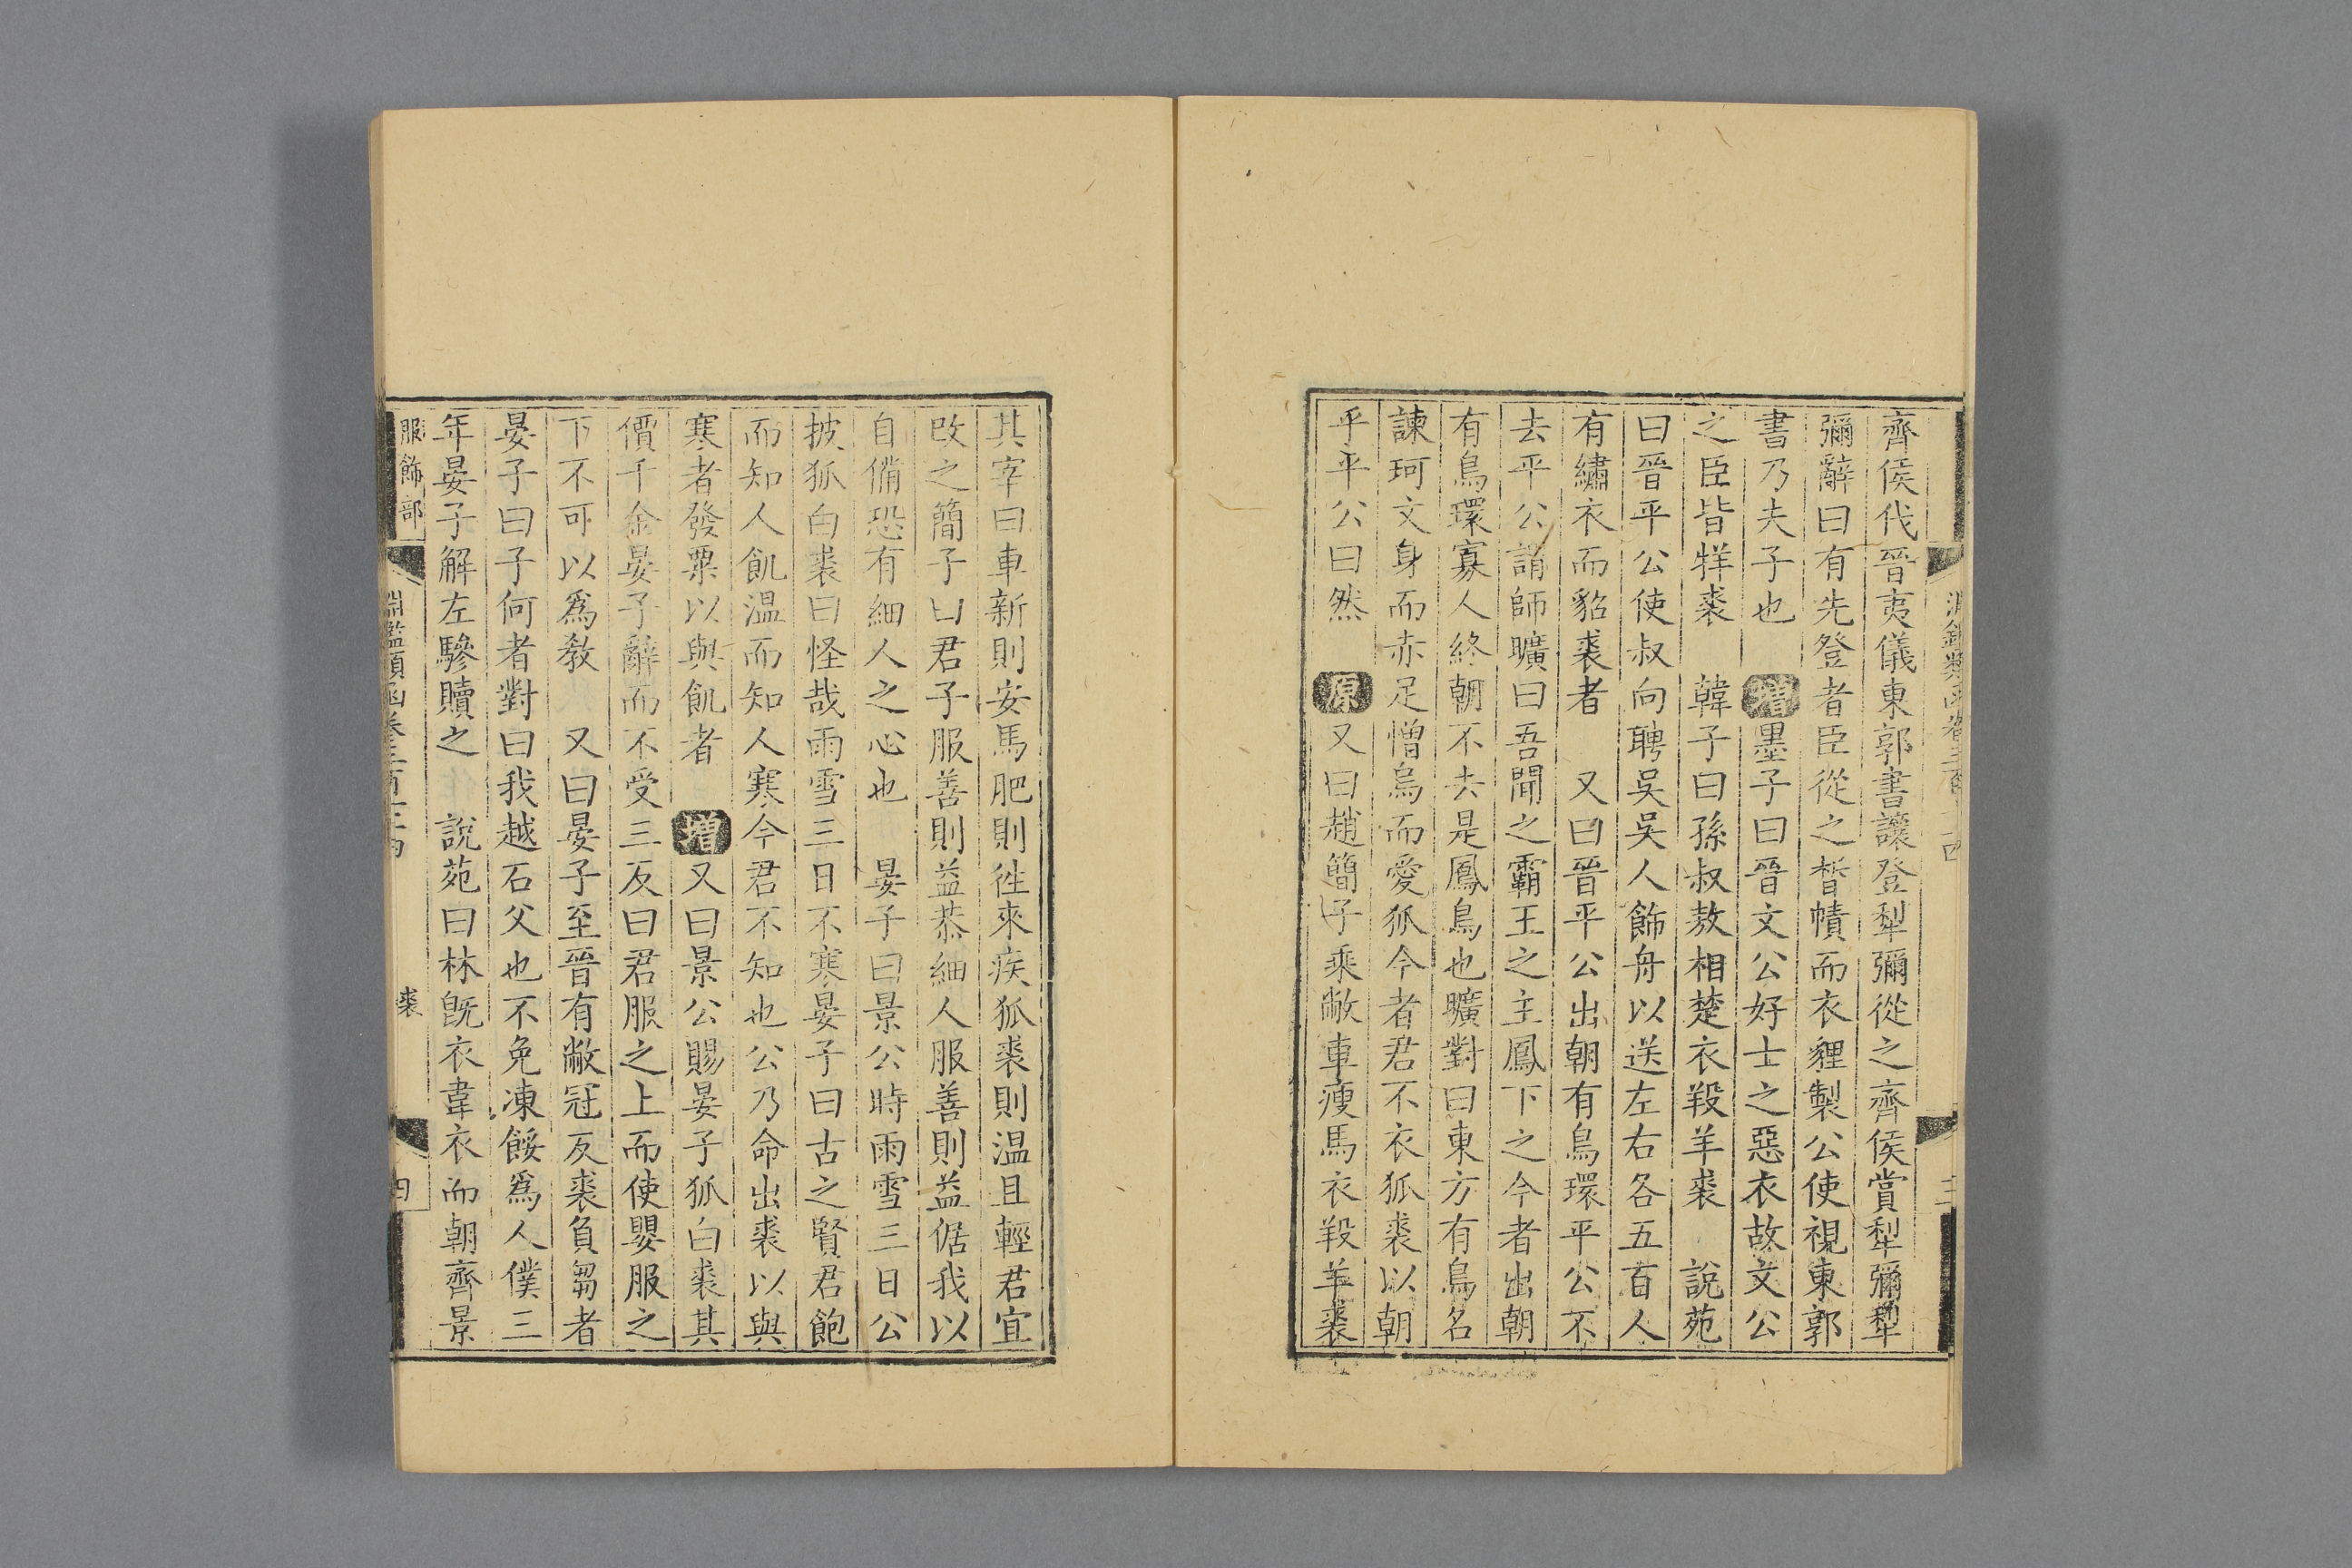 齊侯代晉夷儀東郭書讓登犁彌從之齊侯賞犁彌犁
彌辭曰有先登者臣從之皙幘而衣貍製公使視東郭
書乃夫子也 增墨子曰晉文公好士之惡衣故文公
之臣皆牂裘 韓子曰孫叔敖相楚衣羖羊裘 說苑
曰晉平公使叔向聘吳吳人飾舟以送左右各五百人
有繡衣而貂裘者 又曰晉平公出朝有鳥環平公不
去平公謂師曠曰吾聞之霸王之主鳳下之今者出朝
有鳥環寡人終朝不去是鳳鳥也曠對曰東方有鳥名
諫珂文身而赤足憎鳥而愛狐今者君不衣狐裘以朝
乎平公曰然 原又曰趙簡子乘敝車瘦馬衣羖羊裘
其宰曰車新則安馬肥則徃來疾狐裘則温且輕君宜
改之簡子曰君子服善則益恭細人服善則益倨我以
自備恐有細人之心也 晏子曰景公時雨雪三日公
披狐白裘曰怪哉雨雪三日不寒晏子曰古之賢君飽
而知人飢温而知人寒今君不知也公乃命出裘以與
寒者發粟以與飢者 增又曰景公賜晏子狐白裘其
價千金晏子辭而不受三反曰君服之上而使嬰服之
下不可以爲教 又曰晏子至晉有敝冠反裘負芻者
晏子曰子何者對曰我越石父也不免凍餒爲人僕三
年晏子解左驂贖之 說苑曰林旣衣韋衣而朝齊景
服飾部 淵鑑類函卷三百七十四 裘 四